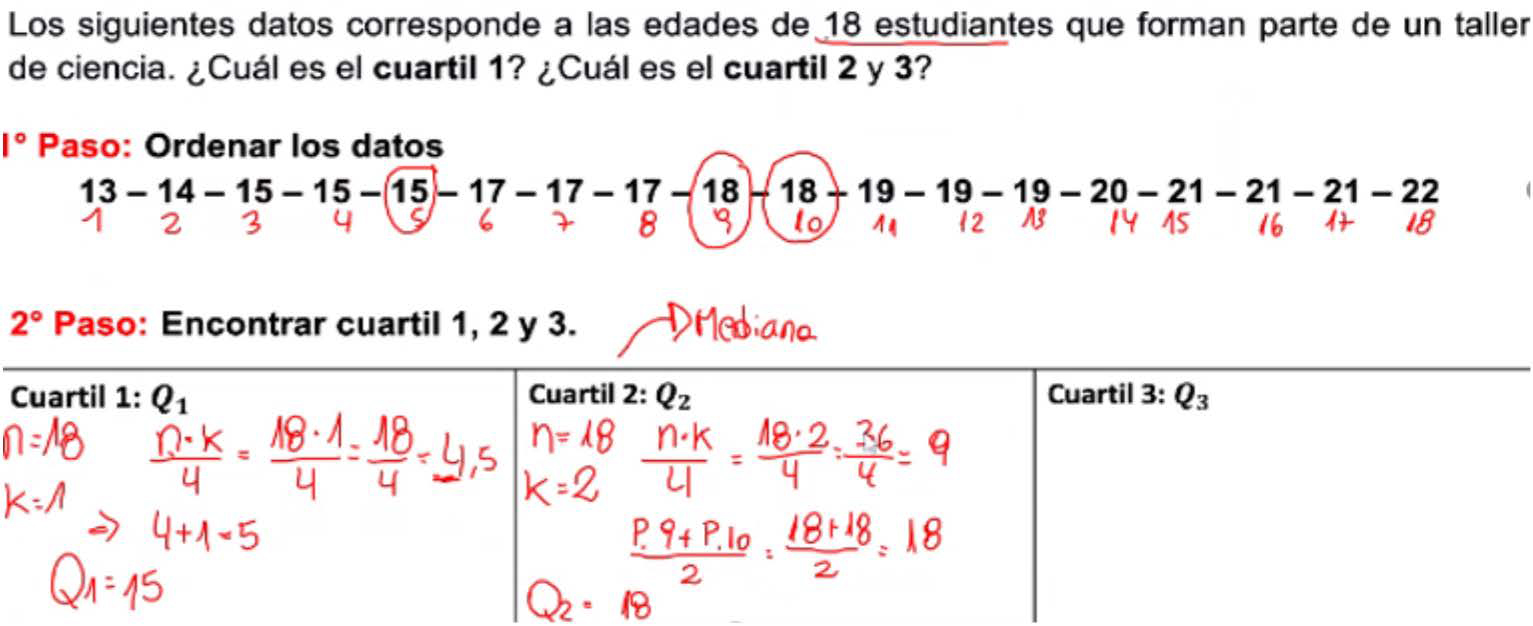 Los siguientes datos corresponde a las edades de 18 estudiantes que forman parte de un taller
de ciencia. ¿Cuál es el cuartil 1? ¿Cuál es el cuartil 2 y 3?
1° Paso: Ordenar los datos
13 – 14 – 15 – 15 – 15 – 17 – 17 – 17 – 18 – 18 – 19 – 19 – 19 – 20 – 21 – 21 – 21 – 22
1 2 3 4 5 6 7 8 9 10 11 12 13 14 15 16 17 18
2° Paso: Encontrar cuartil 1, 2 y 3.
Mediana
Cuartil 1: Q₁
n=18 n·k/4 = 18·1/4 = 18/4 = 4,5
k=1
⇒ 4+1=5
Q1=15
Cuartil 2: Q₂
n=18 n·k/4 = 18·2/4 = 36/4 = 9
k=2
P.9+P.10/2 = 18+18/2 = 18
Q2 = 18
Cuartil 3: Q₃